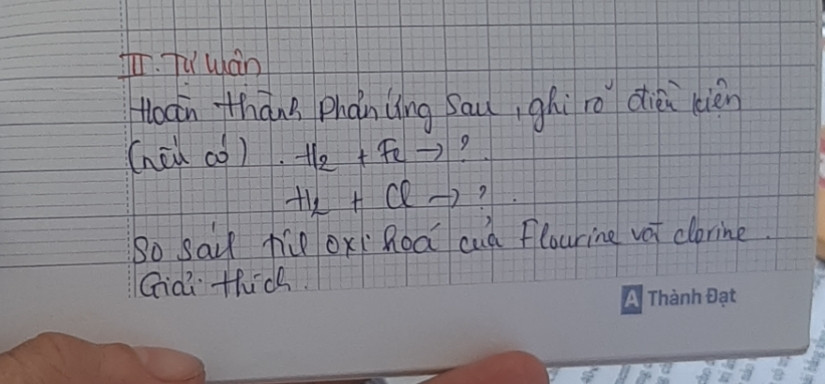 II. Tự luận
Hoàn thành phản ứng sau, ghi rõ điều kiện
(nếu có). H2 + F2 → ?.
H2 + Cl → ?.
So sánh tính oxi hoá của Flourine với clorine.
Giải thích.
A Thành Đạt